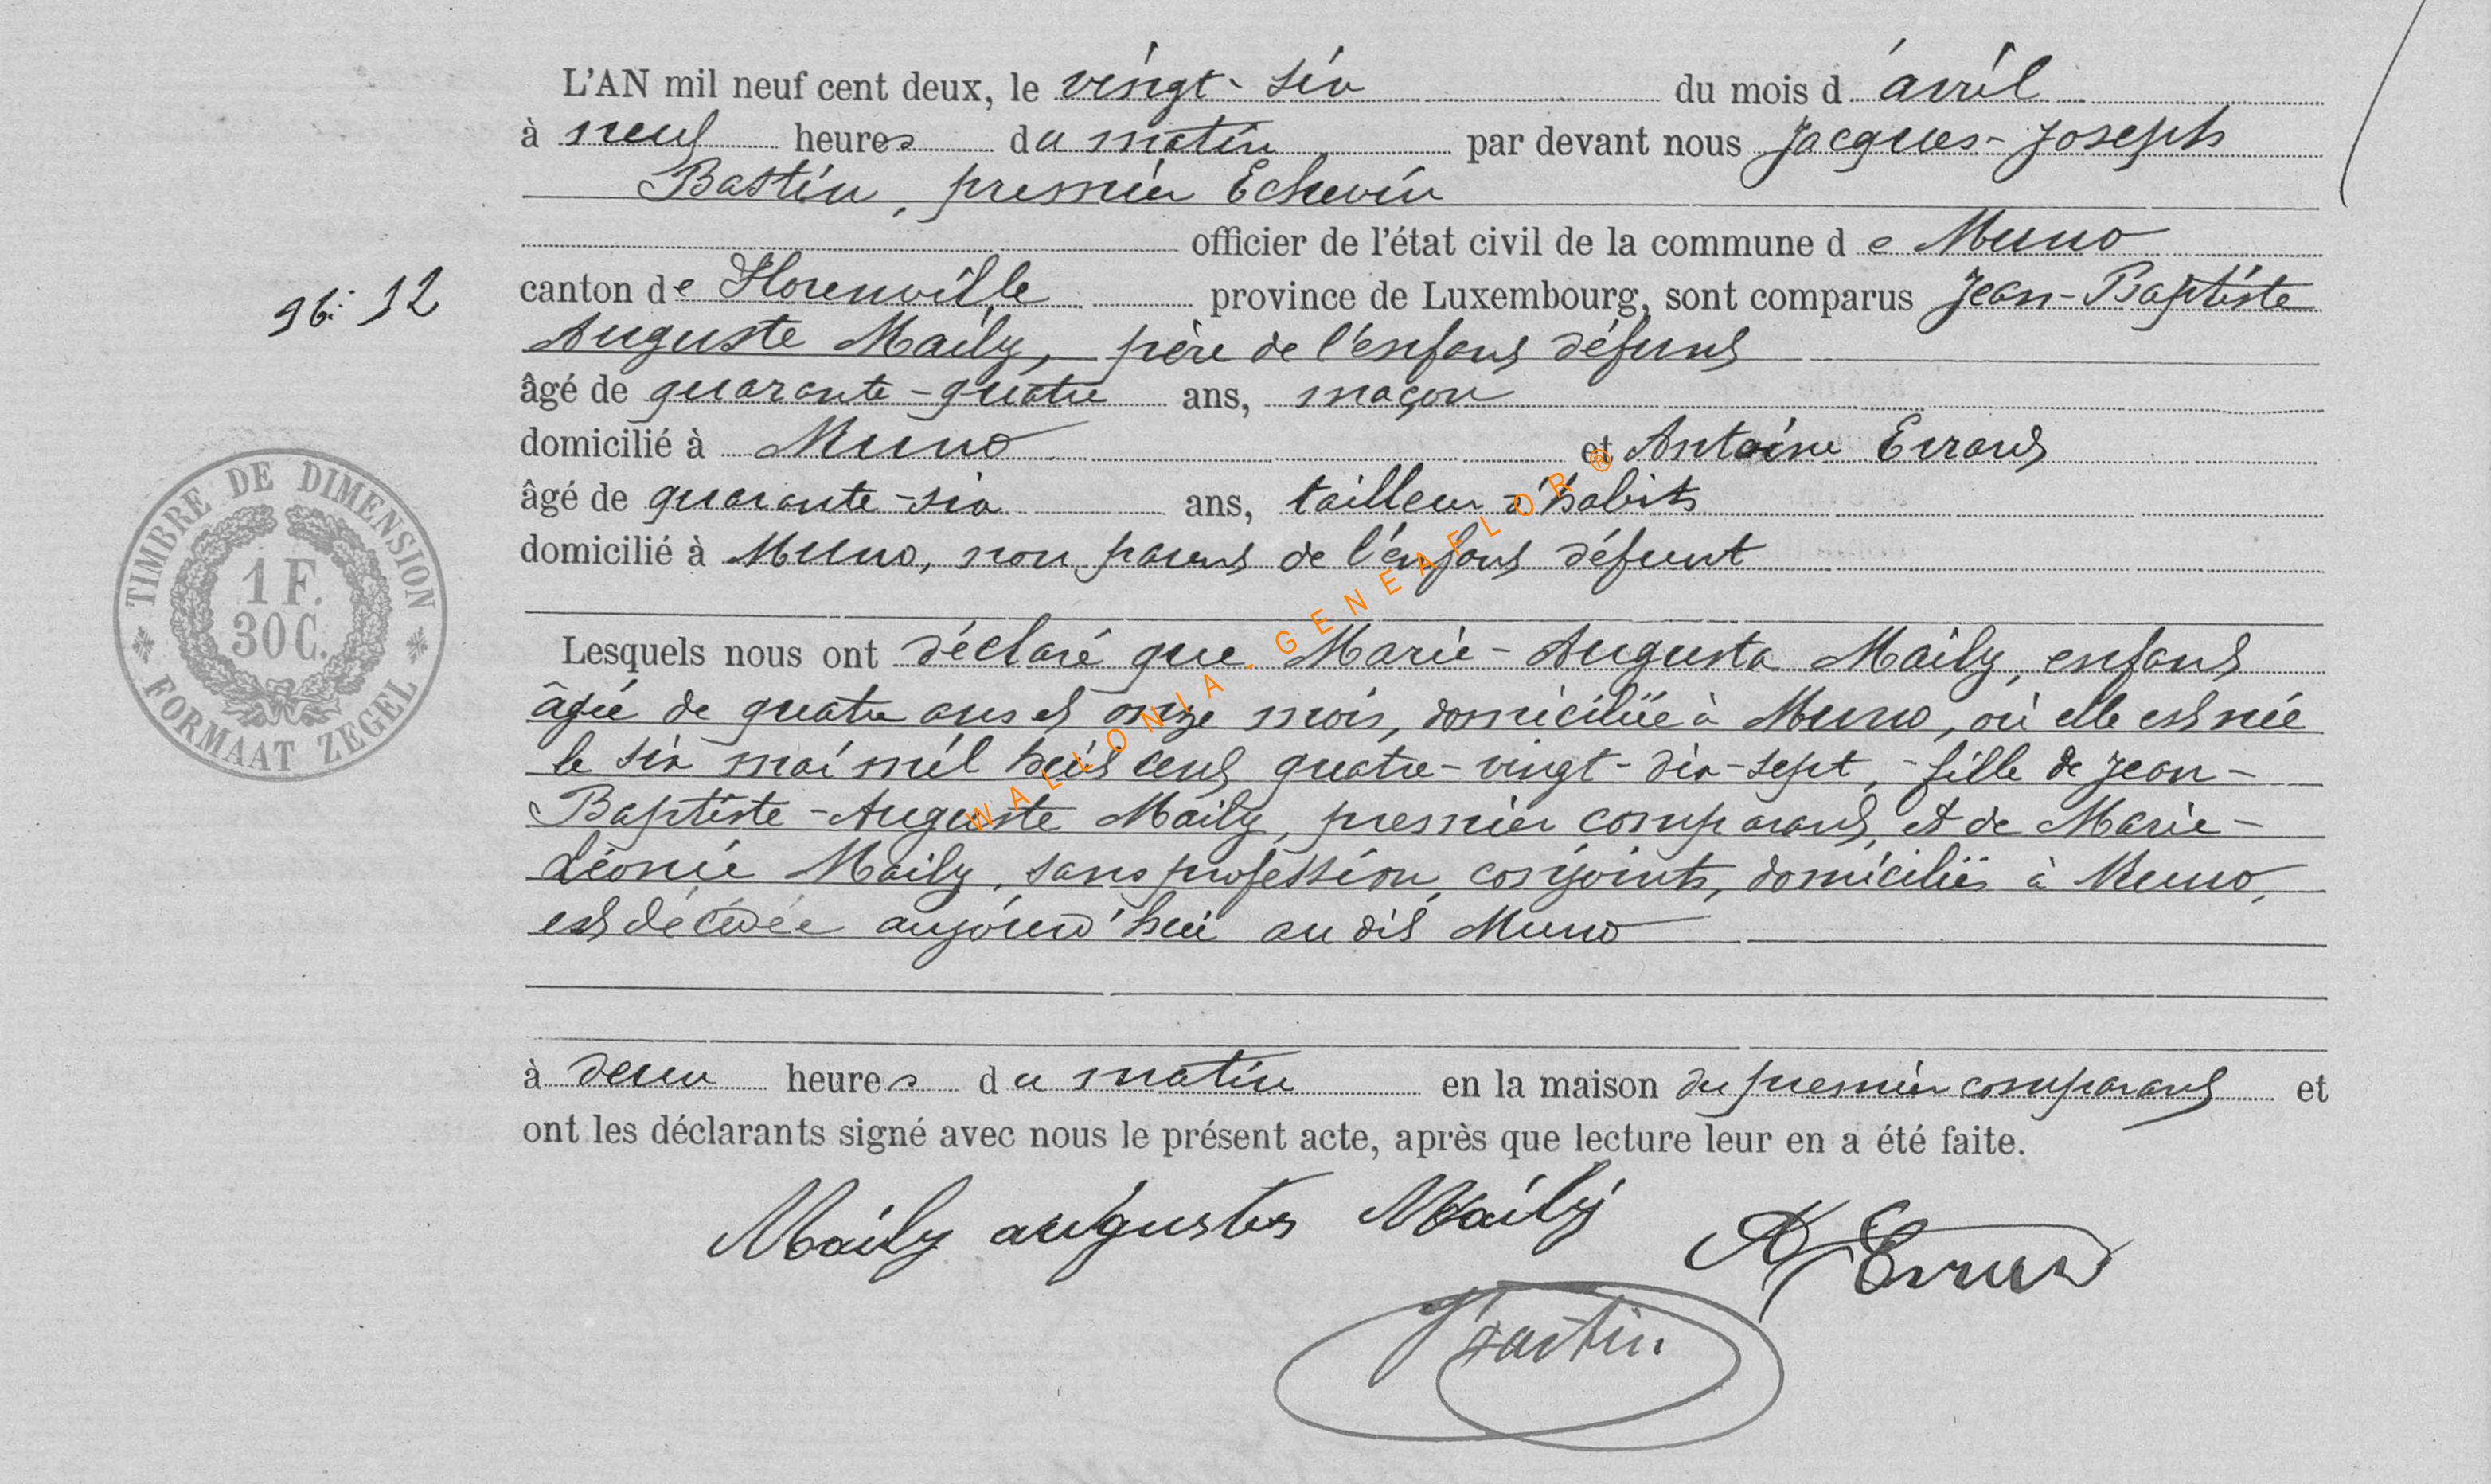 L'AN mil neuf cent deux, le vingt-six du mois d'avril
à neuf heures du matin par devant nous Jacques-Joseph
Bastin, premier Echevin
officier de l'état civil de la commune de Muno
No. 12
canton de Florenville province de Luxembourg, sont comparus Jean-Baptiste
Auguste Maily, père de l'enfant défunt
âgé de quarante-quatre ans, maçon
domicilié à Muno et Antoine Errard
âgé de quarante-six ans, tailleur d'habits
domicilié à Muno, non parent de l'enfant défunt
TIMBRE DE DIMENSION
1 F.
30 C.
FORMAAT ZEGEL
Lesquels nous ont déclaré que Marie-Augusta Maily, enfant
âgée de quatre ans et onze mois, domiciliée à Muno, où elle est née
le six mai mil huit cent quatre-vingt-dix-sept, fille de Jean-
Baptiste-Auguste Maily, premier comparant, et de Marie-
Léonie Maily, sans profession, conjoints, domiciliés à Muno,
est décédée aujourd'hui au dit Muno
à deux heures du matin en la maison du premier comparant et
ont les déclarants signé avec nous le présent acte, après que lecture leur en a été faite.
Maily auguste Maily A Errard
Bastin
WALLONIA.GENEAFLOR ®